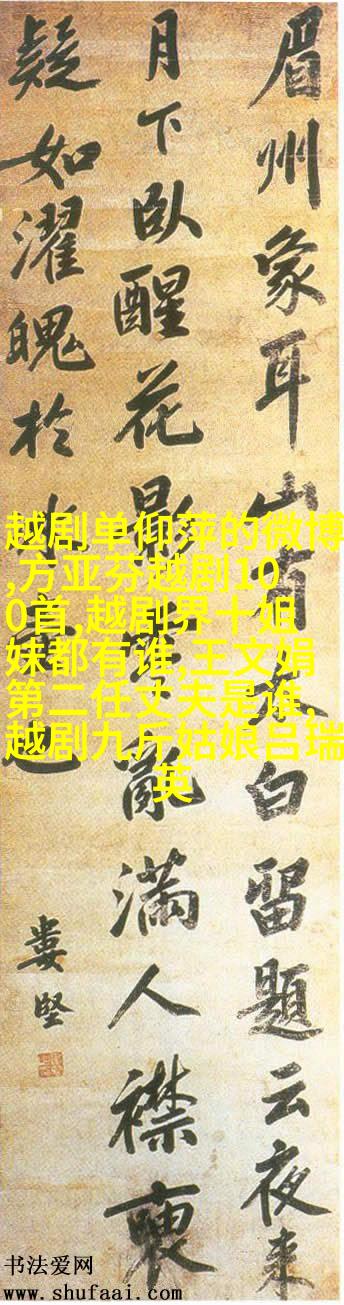 眉州象耳山有李白留題云夜來
月下臥醒花影零亂滿人襟
疑如濯魄於冰壺也
婁堅
越剧单仰萍的微博
,方亚芬越剧10
0首,越剧界十姐
妹都有谁,王文娟
第二任丈夫是谁,
越剧九斤姑娘吕瑞
英
书法爱网
www.shufaai.com